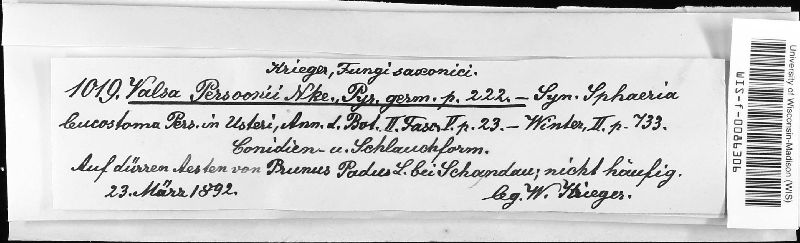 Krieger, Fungi saxonici.
1019. Valsa Persoonii Nke., Pyr. germ. p. 222. – Syn. Sphaeria
leucostoma Pers. in Usteri, Ann. d. Bot. II. Fasc. V. p. 23. – Winter, II. p. 733.
Conidien- u. Schlauchform.
Auf dürren Aesten von Prunus Padus L. bei Schandau; nicht häufig.
23. März 1892.
leg. W. Krieger.
University of Wisconsin-Madison (WIS)
WIS-f-0084906